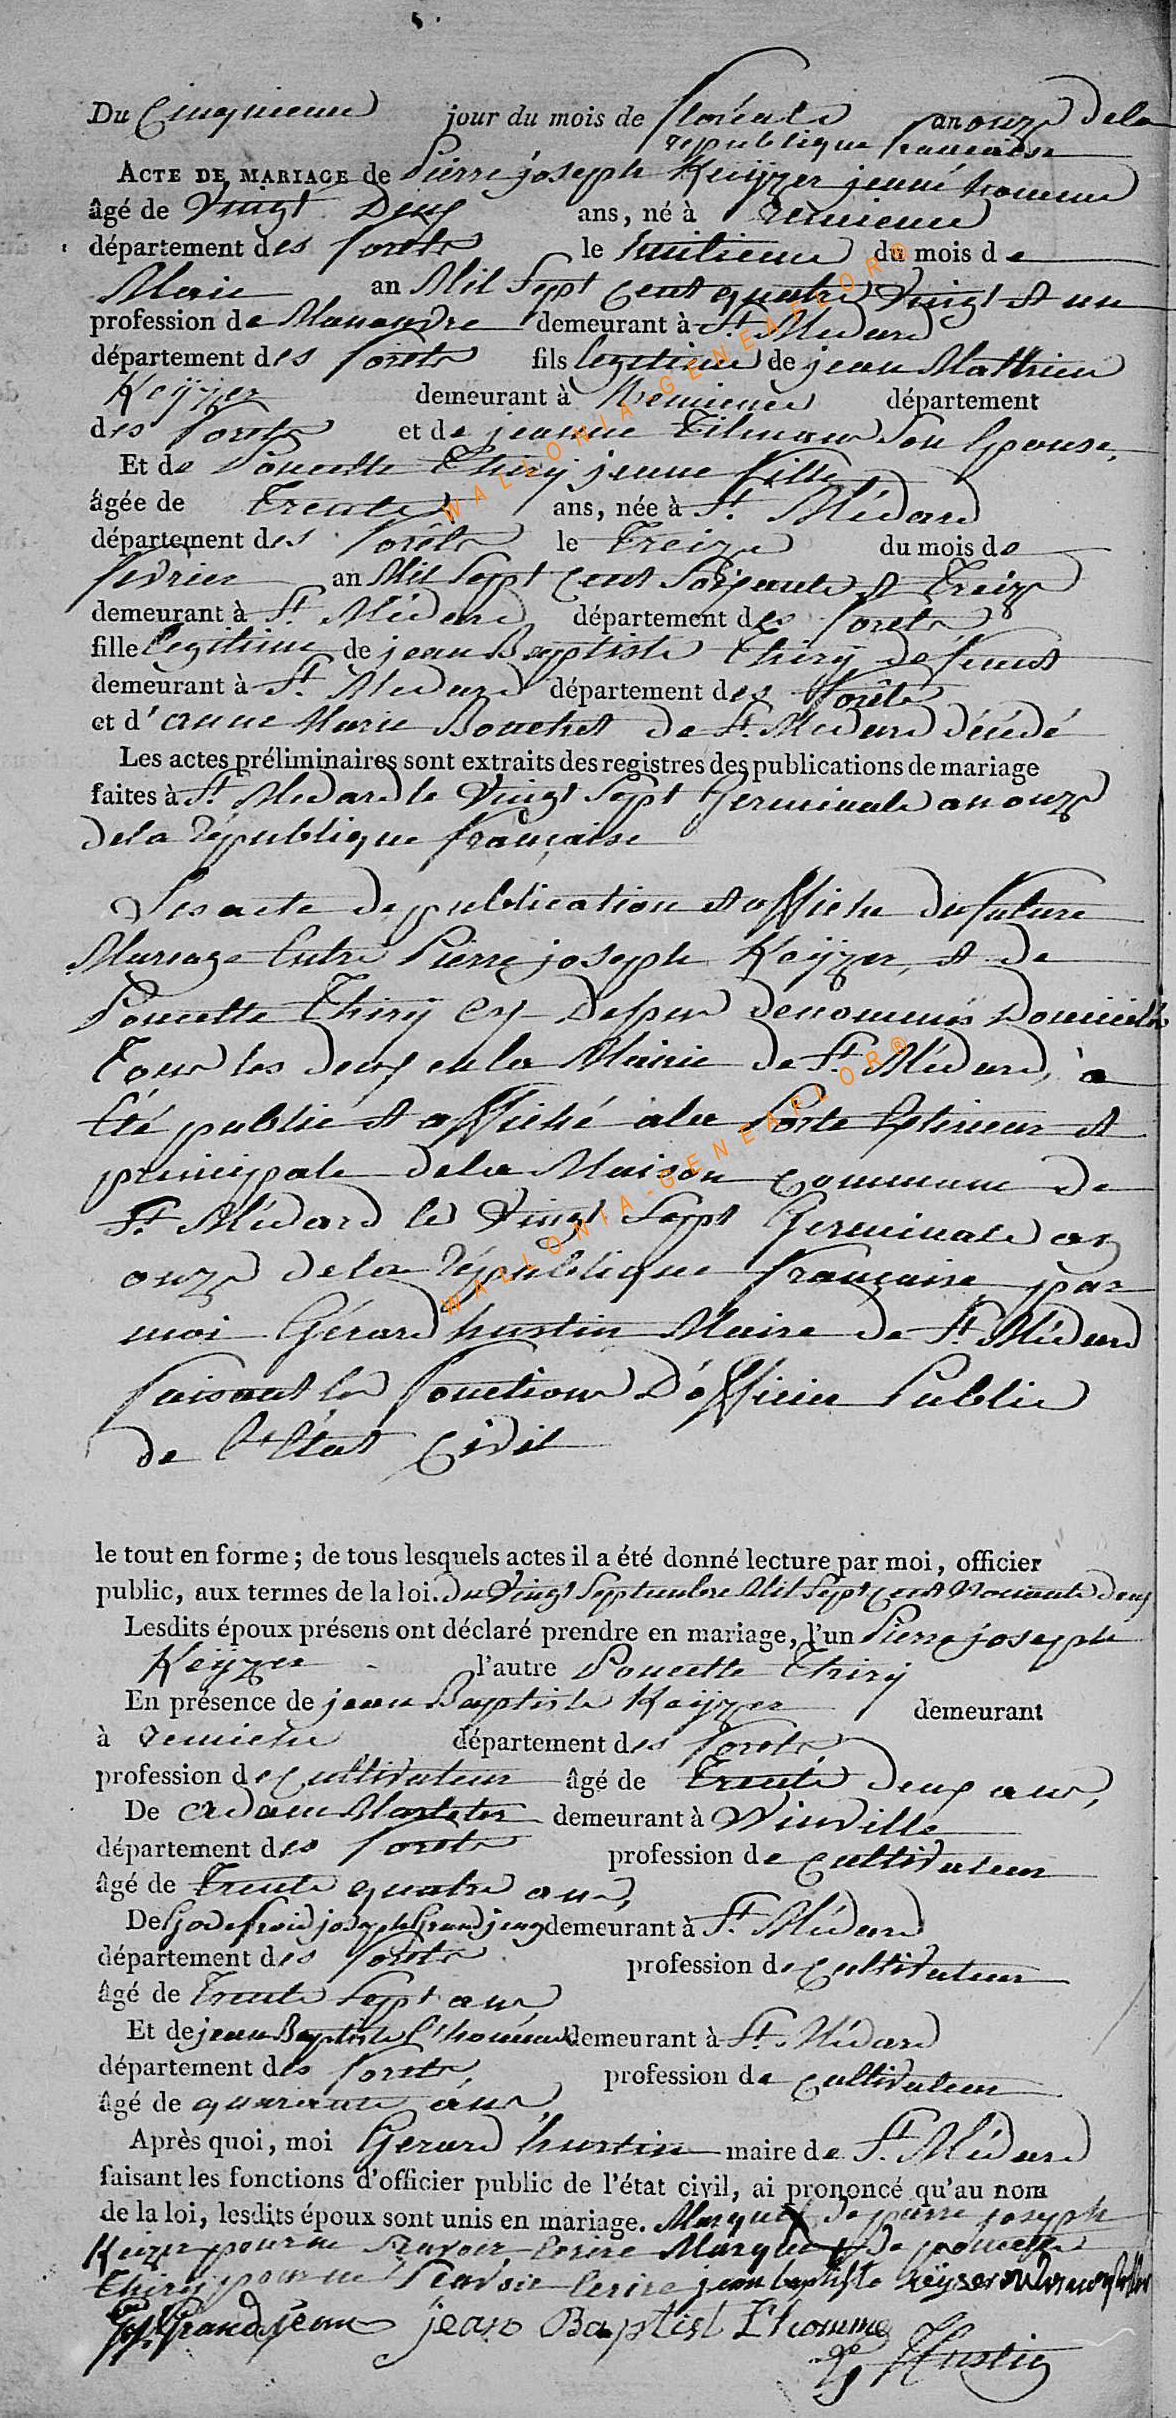 Du Cinquieme jour du mois de floréale an onze dela
republique francaise
ACTE DE MARIAGE de Pierre joseph Keÿzer jeune homme
âgé de Vingt Deux ans, né à remience
département des forets le huitieme du mois de
Maie an Mil Sept cent quatre Vingt et un
profession de Manoeuvre demeurant à St. Medard
département des forets fils legitime de jean Mathieu
Keÿzer demeurant à Remience département
des forets et de jeanne Tilman Son Epouse,
Et de Poncette Thirÿ jeune fille
âgée de Trente ans, née à St. Médard
département des forets le Treize du mois de
fevrier an Mil Sept cent Soixante et Treize
demeurant à St. Médard département des forets
fille legitime de jean Baptiste Thirÿ defunt
demeurant à St. Medard département des forêts
et d'anne Marie Bouchet de St. Medard décédé
Les actes préliminaires sont extraits des registres des publications de mariage
faites à St. Medard le Vingt Sept Germinale an onze
dela république française
Les acte de publication et affiche du future
Mariage Entre Pierre joseph Keÿzer, et de
Poncette Thirÿ cy Dessus denommés Domicilés
Tous les deux en la Mairie de St. Médard, à
Eté publié et affiché a la Porte Exterieur et
principale dela Maison commune de
St. Médard le Vingt Sept Germinale an
onze dela république française par
moi Gérard hustin Maire de St. Médard
faisant les fonctions D'officier Public
de l'Etat Civil
le tout en forme; de tous lesquels actes il a été donné lecture par moi, officier
public, aux termes de la loi. du Vingt Septembre Mil Sept cent Nonante deux
Lesdits époux présens ont déclaré prendre en mariage, l'un Pierre joseph
Keÿzer l'autre Poncette Thirÿ
En présence de jean Baptiste Keÿzer demeurant
à remience département des forets
profession de cultivateur âgé de Trente deux ans,
De adam demeurant à Winville
département des forets profession de cultivateur
âgé de Trente quatre ans,
De Godefroid joseph Grandjean demeurant à St. Médard
département des forets profession de cultivateur
âgé de Trente Sept ans
Et de jean Baptiste L'homme demeurant à St. Médard
département des forets, profession de cultivateur
âgé de quarante ans
Après quoi, moi Gerard hustin maire de St. Médard
faisant les fonctions d'officier public de l'état civil, ai prononcé qu'au nom
de la loi, lesdits époux sont unis en mariage. Marque X de pierre joseph
Keizer pour ne Scavoir Ecrire Marque X de poncette
Thirÿ pour ne Scavoir Ecrire jean baptiste keÿser
Grandjean jean Baptist L'homme
Hustin
WALLONIA-GENEAFLOR®
WALLONIA-GENEAFLOR®